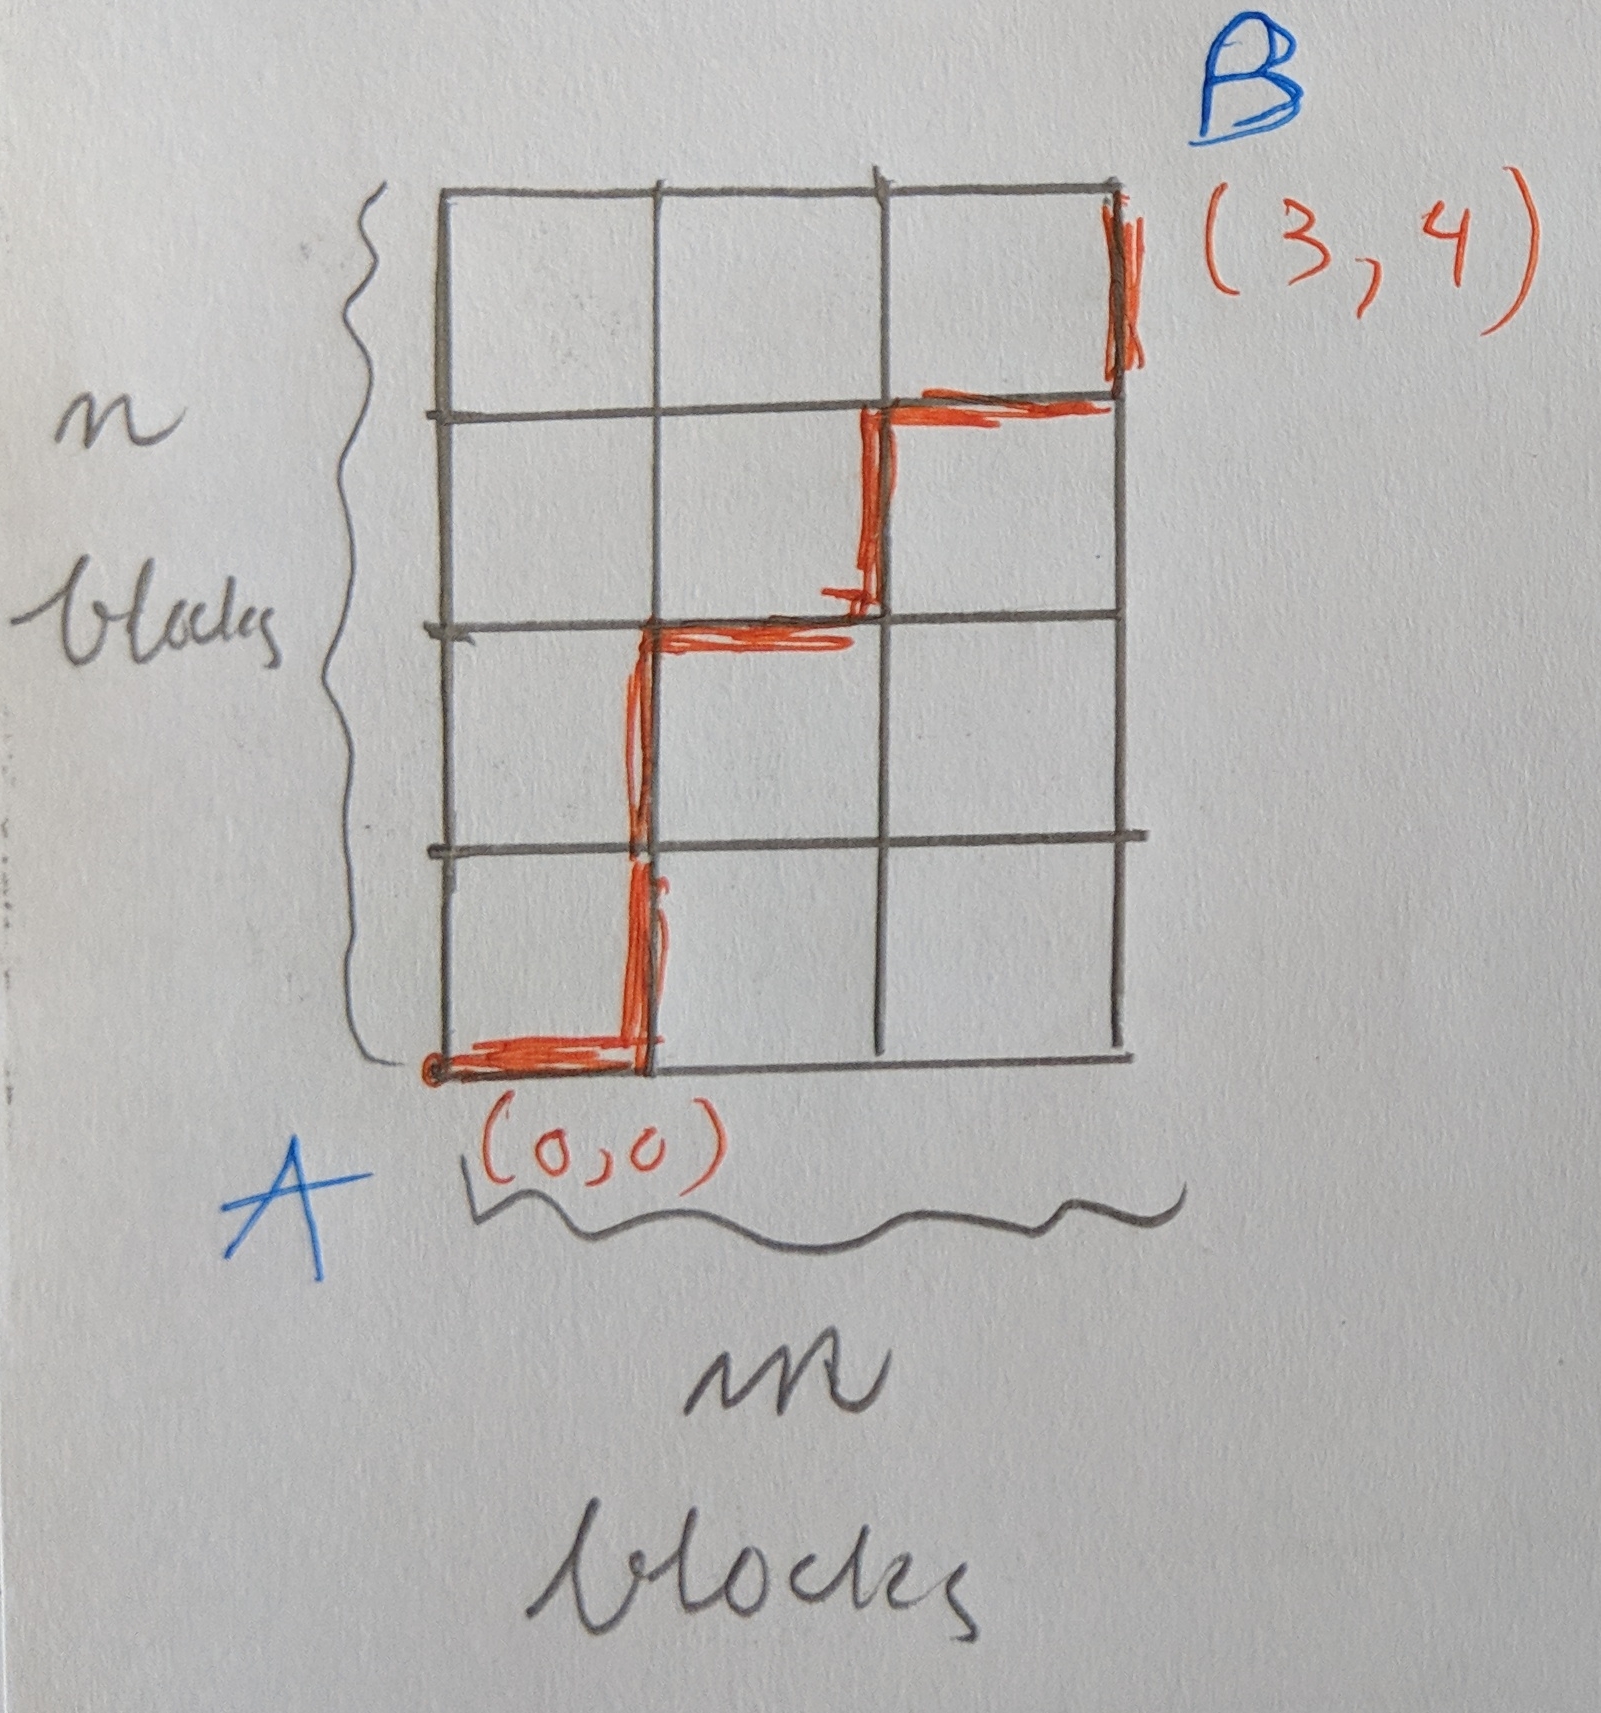 B
(3,4)
n
blocks
(0,0)
A
m
blocks